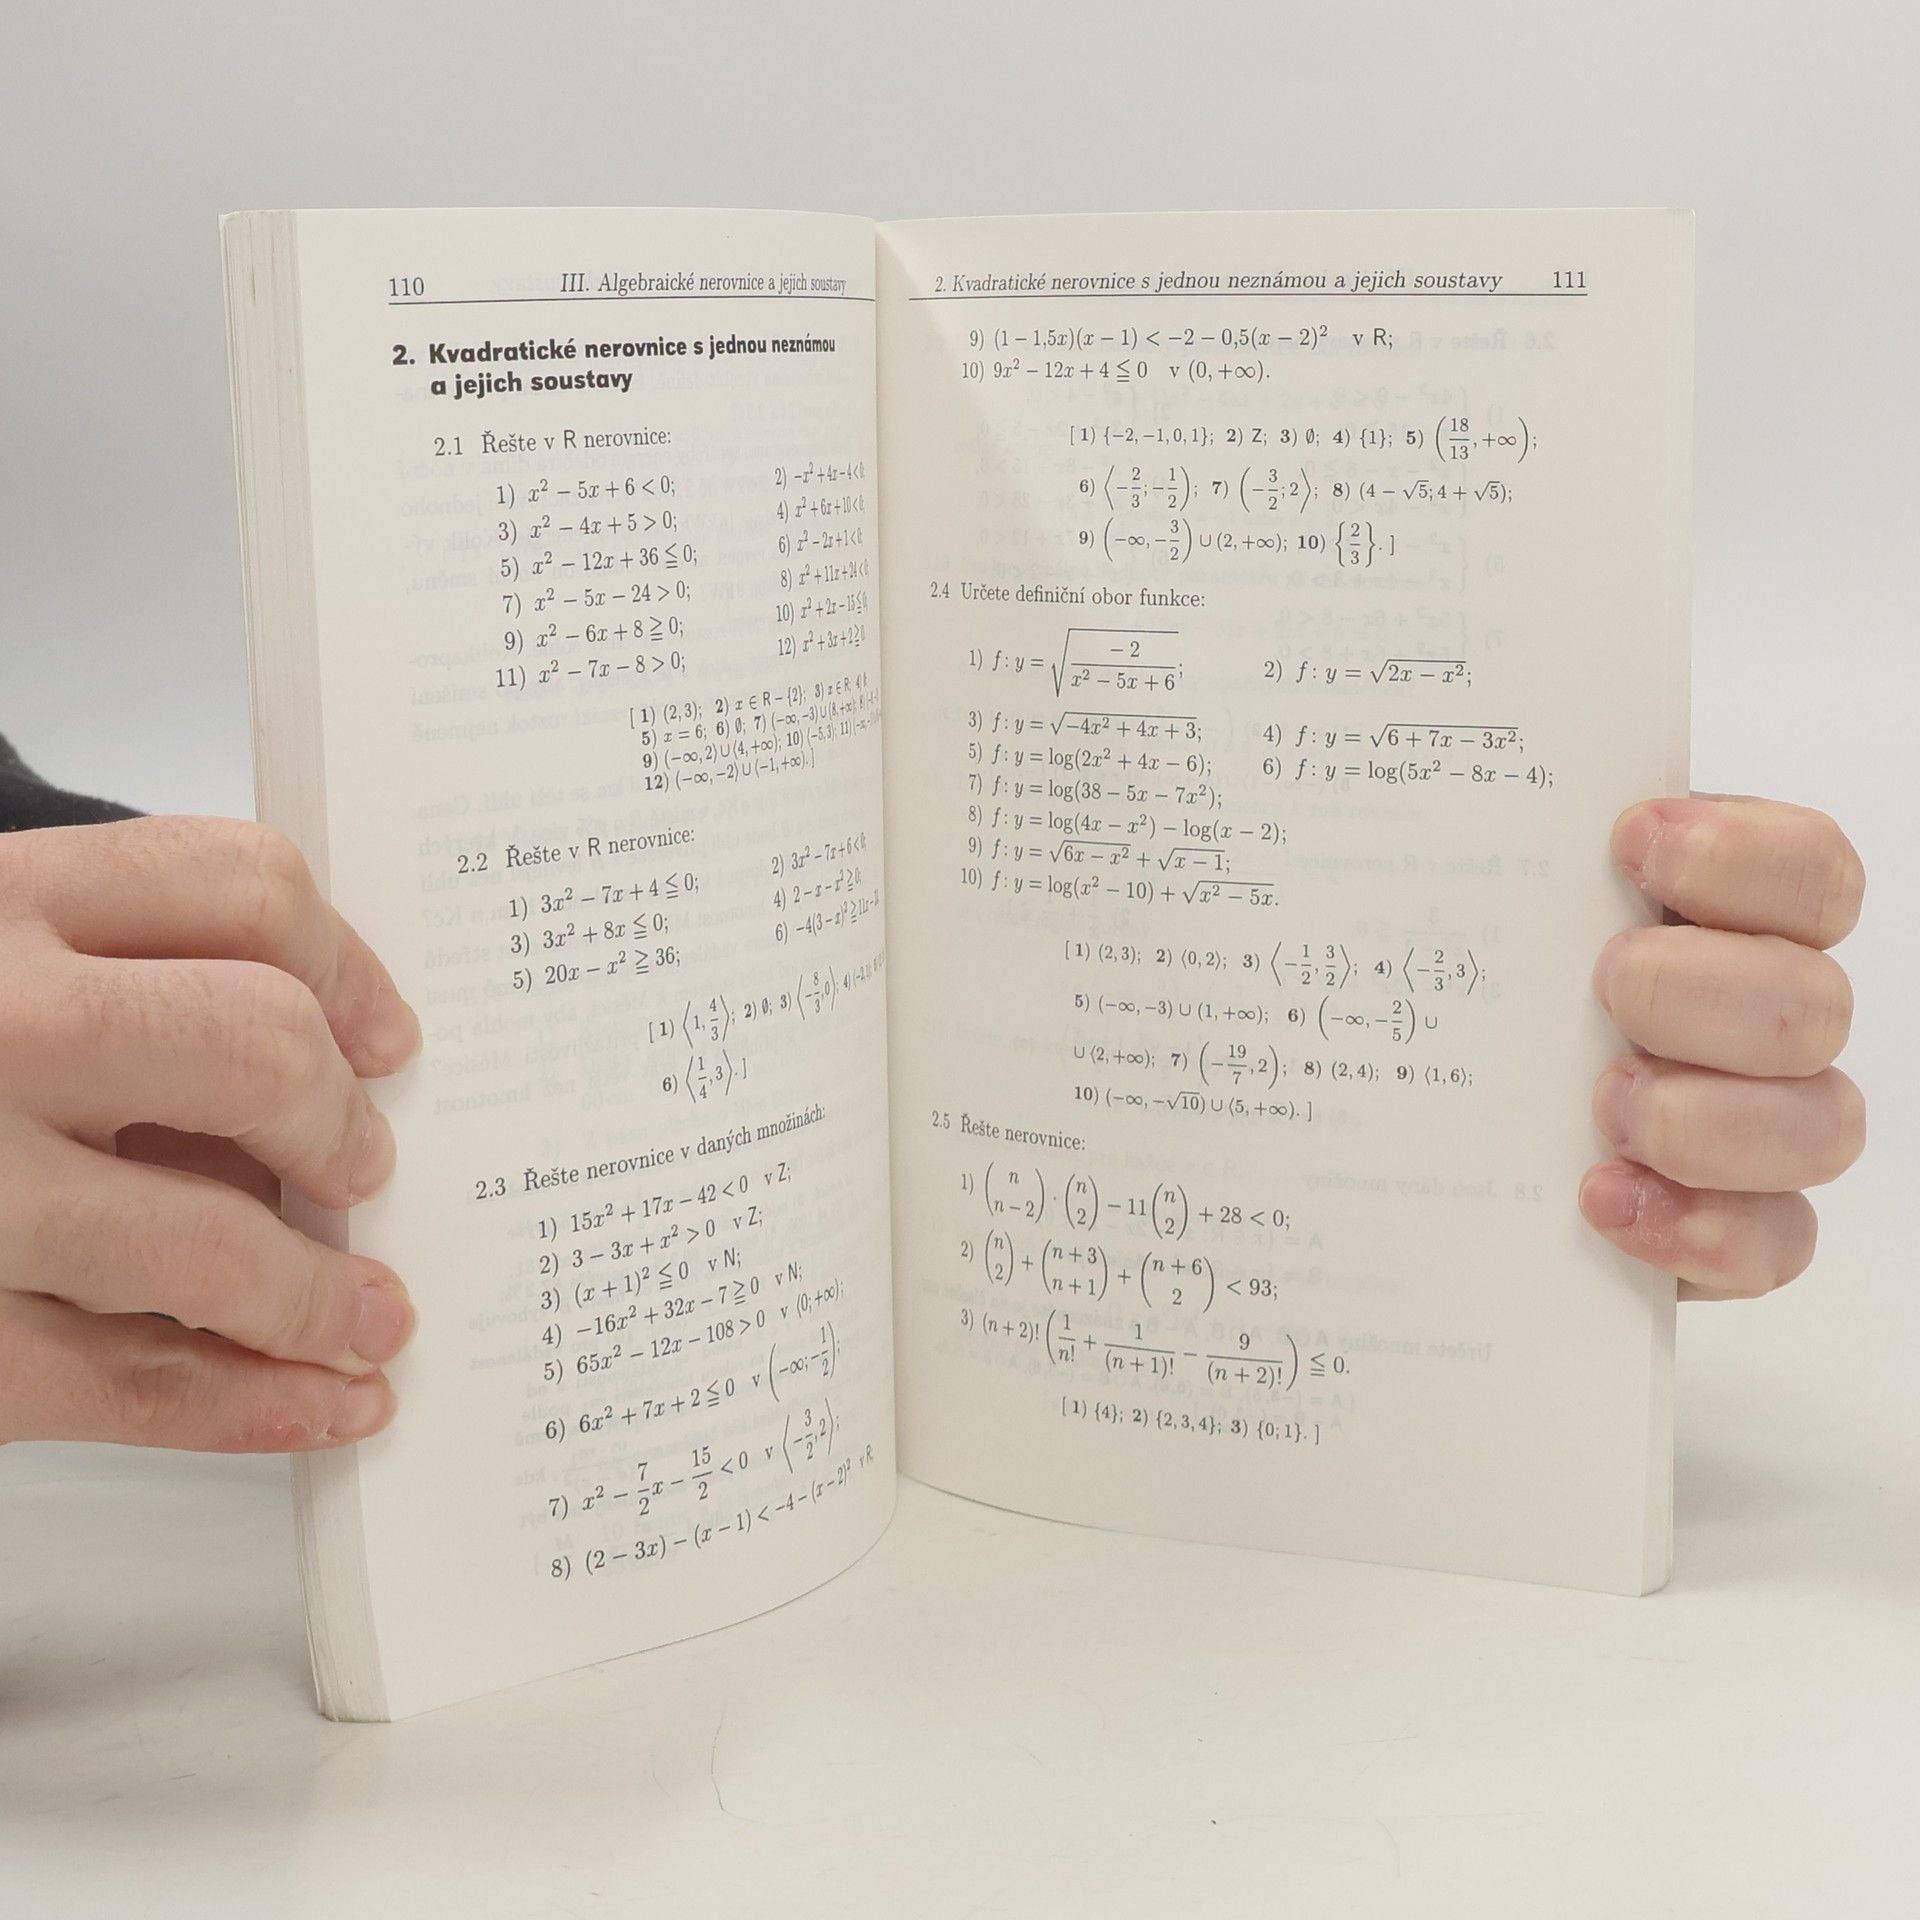 110 III. Algebraické nerovnice a jejich soustavy
2. Kvadratické nerovnice s jednou neznámou
a jejich soustavy
2.1 Řešte v R nerovnice:
1) x² − 5x + 6 < 0; 2) −x² + 4x − 4 < 0;
3) x² − 4x + 5 > 0; 4) x² + 6x + 10 < 0;
5) x² − 12x + 36 ≦ 0; 6) x² − 2x + 1 < 0;
7) x² − 5x − 24 > 0; 8) x² + 11x + 24 < 0;
9) x² − 6x + 8 ≧ 0; 10) x² + 2x − 15 ≦ 0;
11) x² − 7x − 8 > 0; 12) x² + 3x + 2 ≧ 0.
[ 1) (2,3); 2) x ∈ R − {2}; 3) x ∈ R; 4) ∅;
5) x = 6; 6) ∅; 7) (−∞, −3) ∪ (8, +∞);
9) (−∞, 2) ∪ (4, +∞); 10) (−5, 3); 11)
12) (−∞, −2) ∪ (−1, +∞). ]
2.2 Řešte v R nerovnice:
1) 3x² − 7x + 4 ≦ 0; 2) 3x² − 7x + 6 < 0;
3) 3x² + 8x ≦ 0; 4) 2 − x − x² ≧ 0;
5) 20x − x² ≧ 36; 6) −4(3 − x)² ≧ 11x −
[ 1) ⟨1, 4/3⟩; 2) ∅; 3) ⟨−8/3, 0⟩; 4)
6) ⟨1/4, 3⟩. ]
2.3 Řešte nerovnice v daných množinách:
1) 15x² + 17x − 42 < 0 v Z;
2) 3 − 3x + x² > 0 v Z;
3) (x + 1)² ≦ 0 v N;
4) −16x² + 32x − 7 ≧ 0 v N;
5) 65x² − 12x − 108 > 0 v (0; +∞);
6) 6x² + 7x + 2 ≦ 0 v (−∞; −1/2);
7) x² − 7/2 x − 15/2 < 0 v ⟨−3/2, 2⟩;
8) (2 − 3x) − (x − 1) < −4 − (x − 2)² v R
2. Kvadratické nerovnice s jednou neznámou a jejich soustavy 111
9) (1 − 1,5x)(x − 1) < −2 − 0,5(x − 2)² v R;
10) 9x² − 12x + 4 ≦ 0 v (0, +∞).
[ 1) {−2, −1, 0, 1}; 2) Z; 3) ∅; 4) {1}; 5) (18/13, +∞);
6) ⟨−2/3; −1/2); 7) (−3/2; 2⟩; 8) (4 − √5; 4 + √5);
9) (−∞, −3/2) ∪ (2, +∞); 10) {2/3}. ]
2.4 Určete definiční obor funkce:
1) f : y = √(−2/(x² − 5x + 6)); 2) f : y = √(2x − x²);
3) f : y = √(−4x² + 4x + 3); 4) f : y = √(6 + 7x − 3x²);
5) f : y = log(2x² + 4x − 6); 6) f : y = log(5x² − 8x − 4);
7) f : y = log(38 − 5x − 7x²);
8) f : y = log(4x − x²) − log(x − 2);
9) f : y = √(6x − x²) + √(x − 1);
10) f : y = log(x² − 10) + √(x² − 5x).
[ 1) (2, 3); 2) ⟨0, 2⟩; 3) ⟨−1/2, 3/2⟩; 4) ⟨−2/3, 3⟩;
5) (−∞, −3) ∪ (1, +∞); 6) (−∞, −2/5) ∪
∪ (2, +∞); 7) (−19/7, 2); 8) (2, 4); 9) ⟨1, 6⟩;
10) (−∞, −√10) ∪ ⟨5, +∞). ]
2.5 Řešte nerovnice:
1) (n over n − 2) · (n over 2) − 11 (n over 2) + 28 < 0;
2) (n over 2) + (n + 3 over n + 1) + (n + 6 over 2) < 93;
3) (n + 2)! (1/n! + 1/(n + 1)! − 9/(n + 2)!) ≦ 0.
[ 1) {4}; 2) {2, 3, 4}; 3) {0; 1}. ]